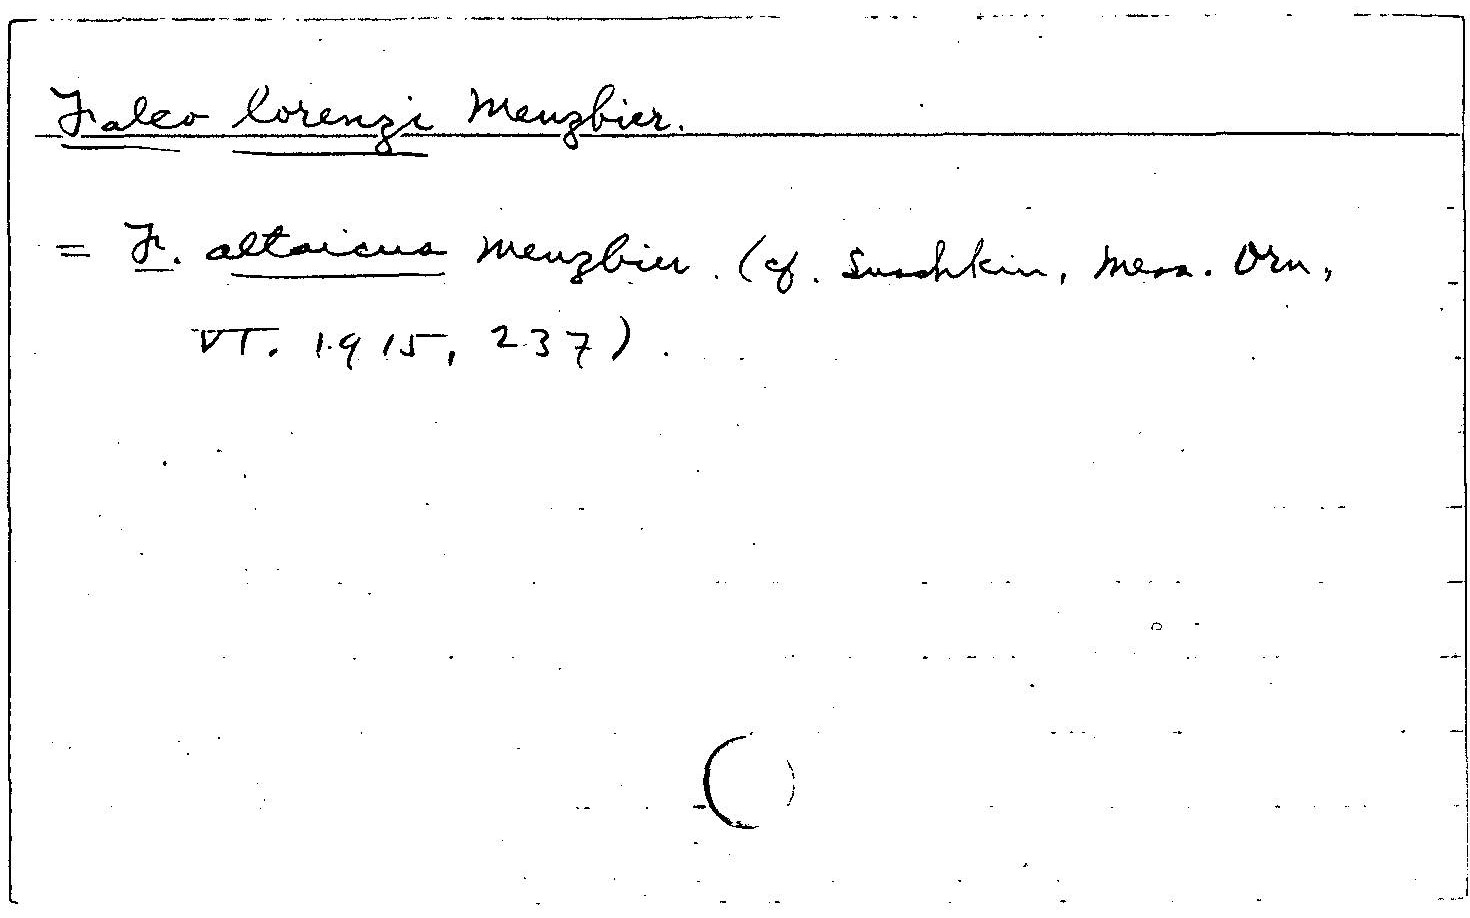 Falco lorenzi Menzbier.
= F. altaicus Menzbier. (cf. Suschkin, Mess. Orn,
VI. 1915, 237).